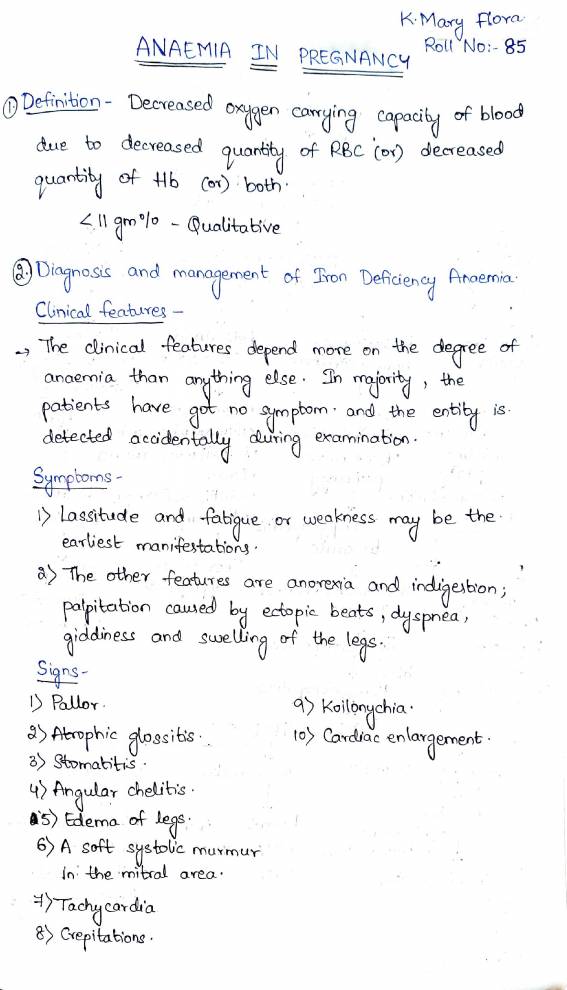 K. Mary Flora
Roll No:- 85
ANAEMIA IN PREGNANCY
① Definition - Decreased oxygen carrying capacity of blood
due to decreased quantity of RBC (or) decreased
quantity of Hb (or) both.
<11 gm% - Qualitative
②. Diagnosis and management of Iron Deficiency Anaemia.
Clinical features -
→ The clinical features depend more on the degree of
anaemia than anything else. In majority, the
patients have got no symptom. and the entity is.
detected accidentally during examination.
Symptoms -
1> Lassitude and fatigue or weakness may be the.
earliest manifestations.
2> The other features are anorexia and indigestion;
palpitation caused by ectopic beats, dyspnea,
giddiness and swelling of the legs.
Signs -
1> Pallor.
2> Atrophic glossitis.
3> Stomatitis.
4> Angular chelitis.
5> Edema of legs.
6> A soft systolic murmur
in the mitral area.
7> Tachycardia
8> Crepitations.
9> Koilonychia.
10> Cardiac enlargement.